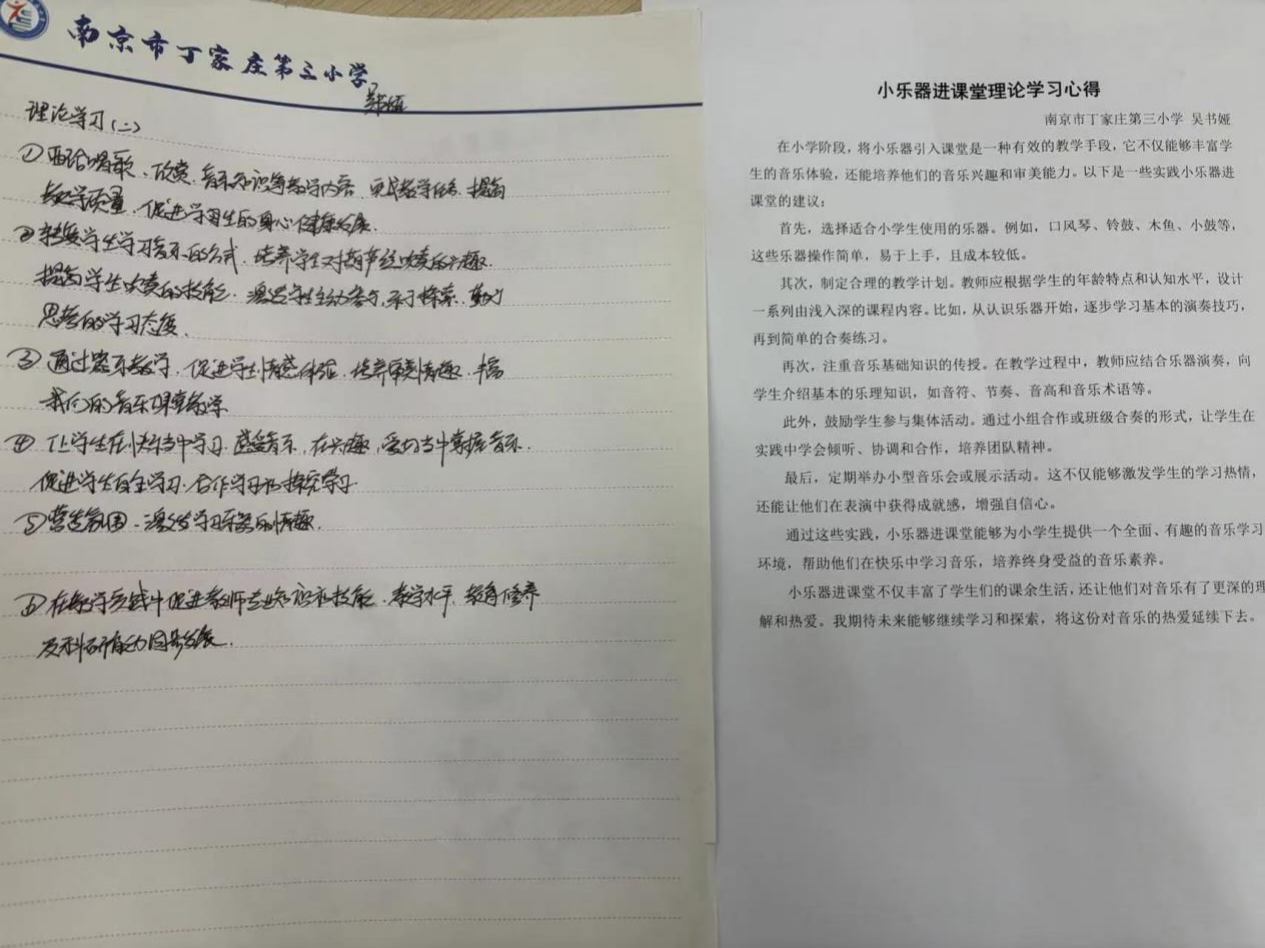 南京市丁家庄第三小学
理论学习(二)
① 唱歌、欣赏、音乐知识等教学内容、教学任务、提高
教学质量、促进学生的身心健康发展
② 转变学生学习音乐的方式、培养学生对的兴趣、
提高学生演奏的技能、激发学生主动参与、乐于探索、勤于
思考的学习态度、
③ 通过器乐教学、促进学生情感体验、培养审美情趣、
我们的音乐课堂教学
④ 让学生在快乐当中学习、感受音乐、在兴趣、当中掌握音乐、
促进学生自主学习、合作学习和探究学习
⑤ 营造氛围、激发学习乐器的情趣、
在教学实践中促进教师专业知识和技能、教学水平、教育修养
及科研能力同步发展、
小乐器进课堂理论学习心得
南京市丁家庄第三小学 吴书娅
在小学阶段，将小乐器引入课堂是一种有效的教学手段，它不仅能够丰富学
生的音乐体验，还能培养他们的音乐兴趣和审美能力。以下是一些实践小乐器进
课堂的建议：
首先，选择适合小学生使用的乐器。例如，口风琴、铃鼓、木鱼、小鼓等，
这些乐器操作简单，易于上手，且成本较低。
其次，制定合理的教学计划。教师应根据学生的年龄特点和认知水平，设计
一系列由浅入深的课程内容。比如，从认识乐器开始，逐步学习基本的演奏技巧，
再到简单的合奏练习。
再次，注重音乐基础知识的传授。在教学过程中，教师应结合乐器演奏，向
学生介绍基本的乐理知识，如音符、节奏、音高和音乐术语等。
此外，鼓励学生参与集体活动。通过小组合作或班级合奏的形式，让学生在
实践中学会倾听、协调和合作，培养团队精神。
最后，定期举办小型音乐会或展示活动。这不仅能够激发学生的学习热情，
还能让他们在表演中获得成就感，增强自信心。
通过这些实践，小乐器进课堂能够为小学生提供一个全面、有趣的音乐学习
环境，帮助他们在快乐中学习音乐，培养终身受益的音乐素养。
小乐器进课堂不仅丰富了学生们的课余生活，还让他们对音乐有了更深的理
解和热爱。我期待未来能够继续学习和探索，将这份对音乐的热爱延续下去。